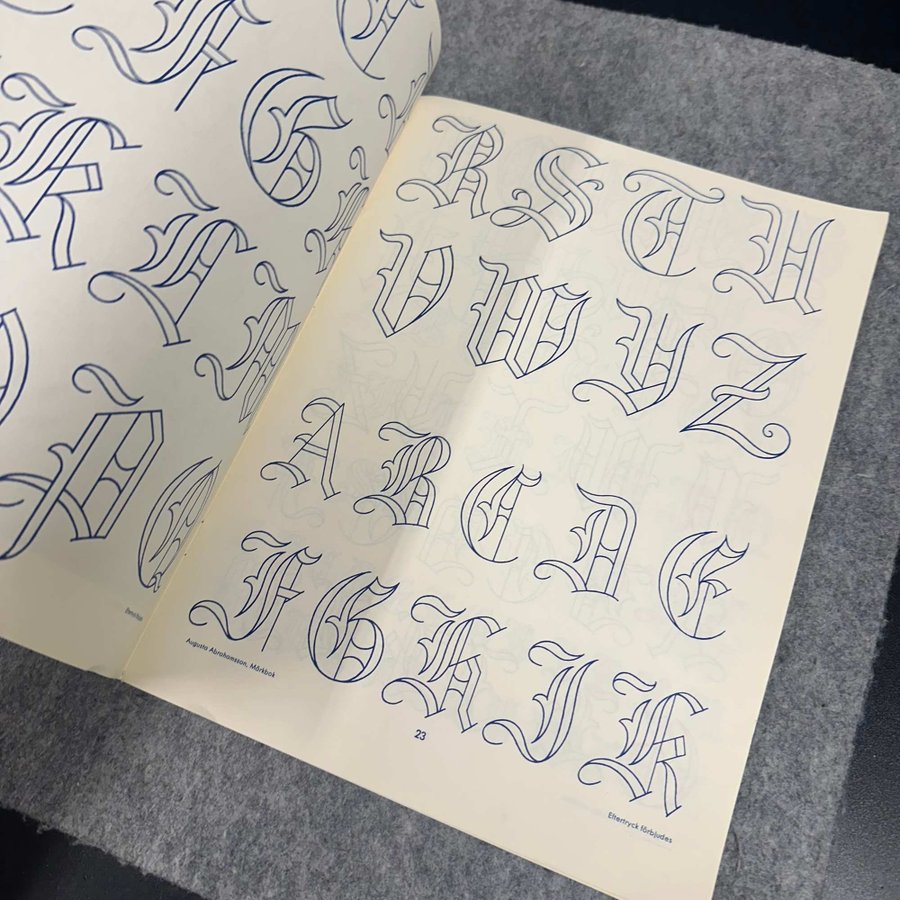 F
G
K
I
P
R S T U
V W Y Z
A B C D E
F G H I K
Augusta Abrahamsson, Märkbok
23
Eftertryck förbjudes